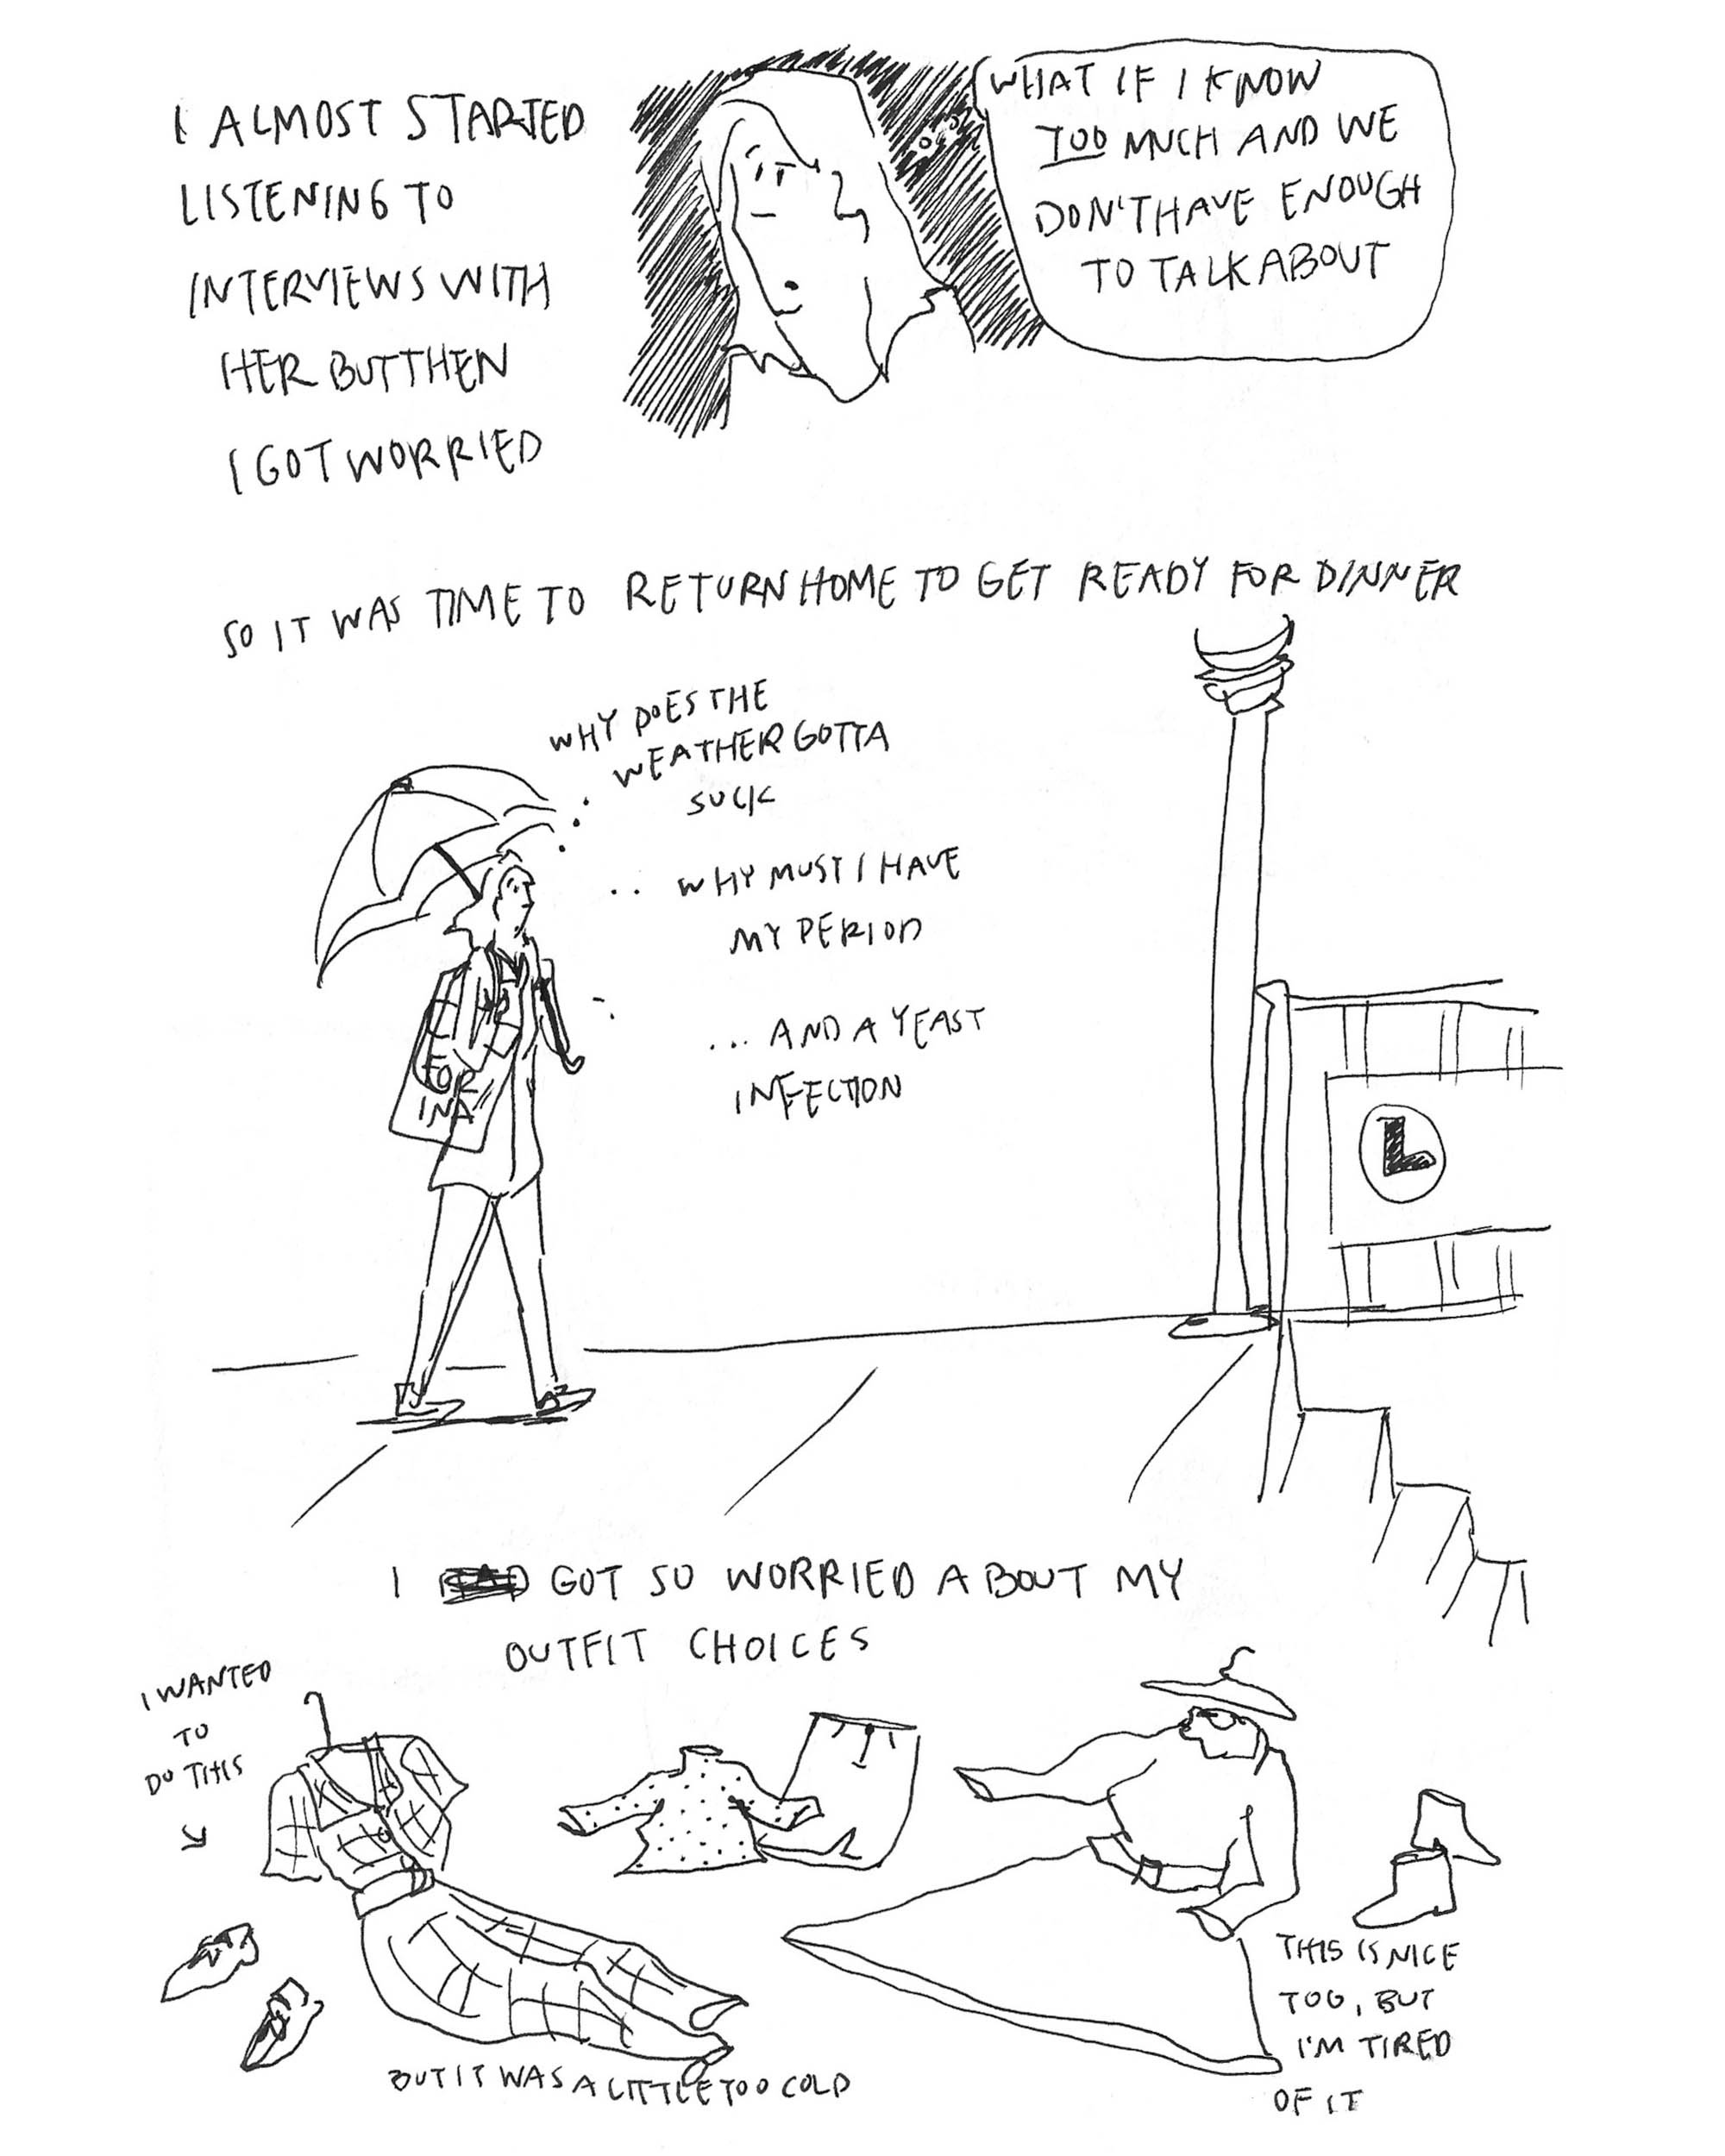 I ALMOST STARTED
LISTENING TO
INTERVIEWS WITH
HER BUT THEN
I GOT WORRIED
WHAT IF I KNOW
TOO MUCH AND WE
DON'T HAVE ENOUGH
TO TALK ABOUT
SO IT WAS TIME TO RETURN HOME TO GET READY FOR DINNER
WHY DOES THE
WEATHER GOTTA
SUCK
.. WHY MUST I HAVE
MY PERIOD
... AND A YEAST
INFECTION
FOR
INA
L
I GOT SO WORRIED ABOUT MY
OUTFIT CHOICES
I WANTED
TO
DO THIS
BUT IT WAS A LITTLE TOO COLD
THIS IS NICE
TOO, BUT
I'M TIRED
OF IT